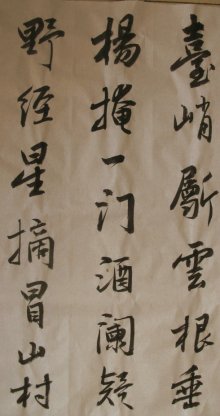 臺峭斸雲根垂
楊掩一门酒阑疑
野经星摘冒山村